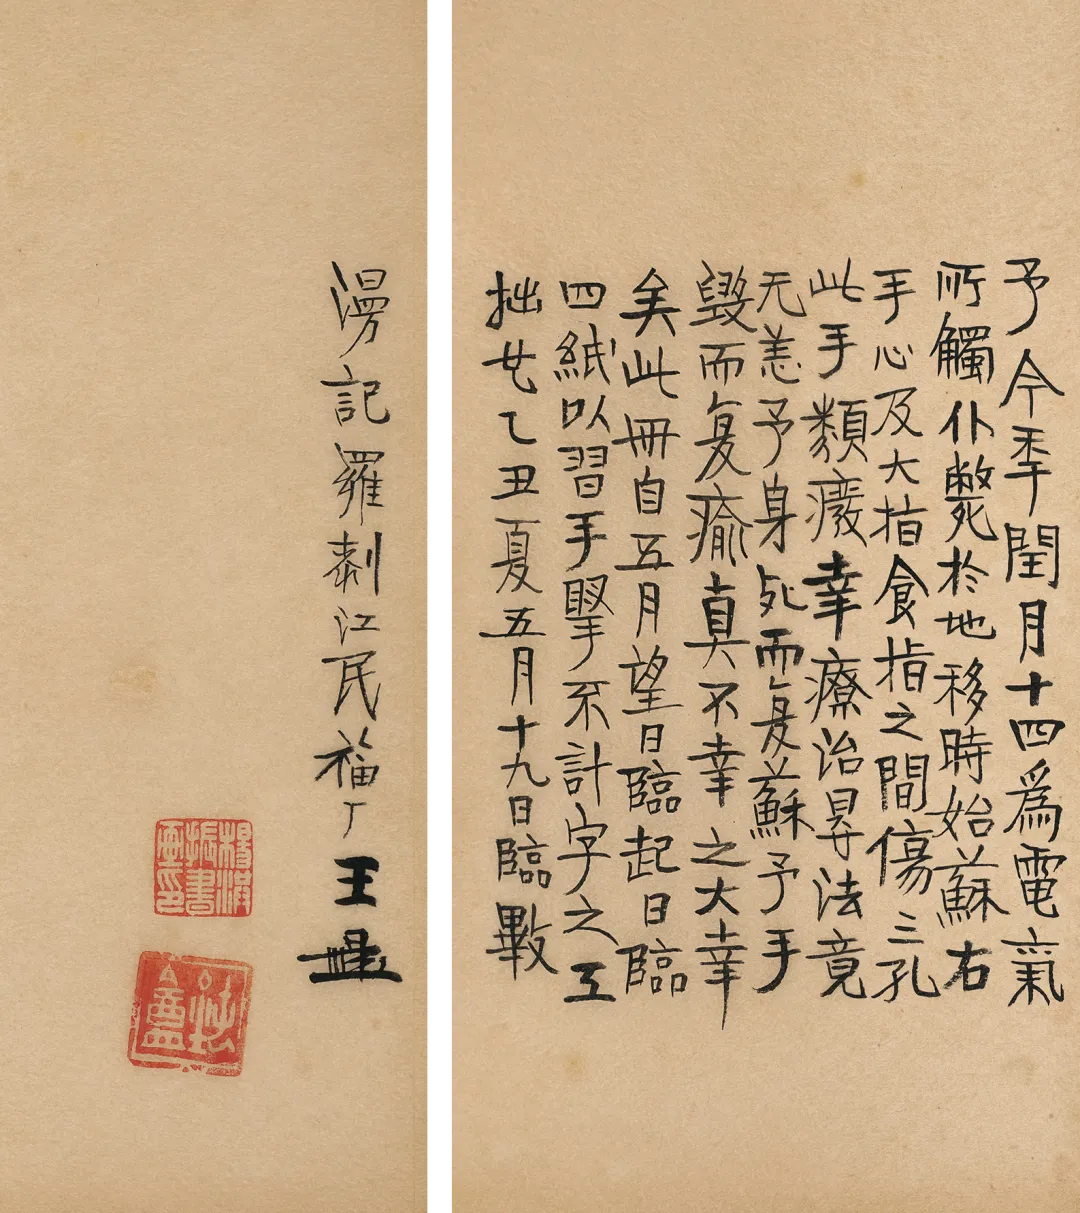 予今秊閏月十四爲電氣
所觸仆斃於地移時始蘇右
手心及大指食指之間傷三孔
此手類癈幸療治㝵法竟
无恙予身死而复蘇予手
毀而复瘉真不幸之大幸
矣此冊自五月望日臨起日臨
四紙以習手掔不計字之工
拙也乙丑夏五月十九日臨㪤
漫記羅刹江民福厂王禔